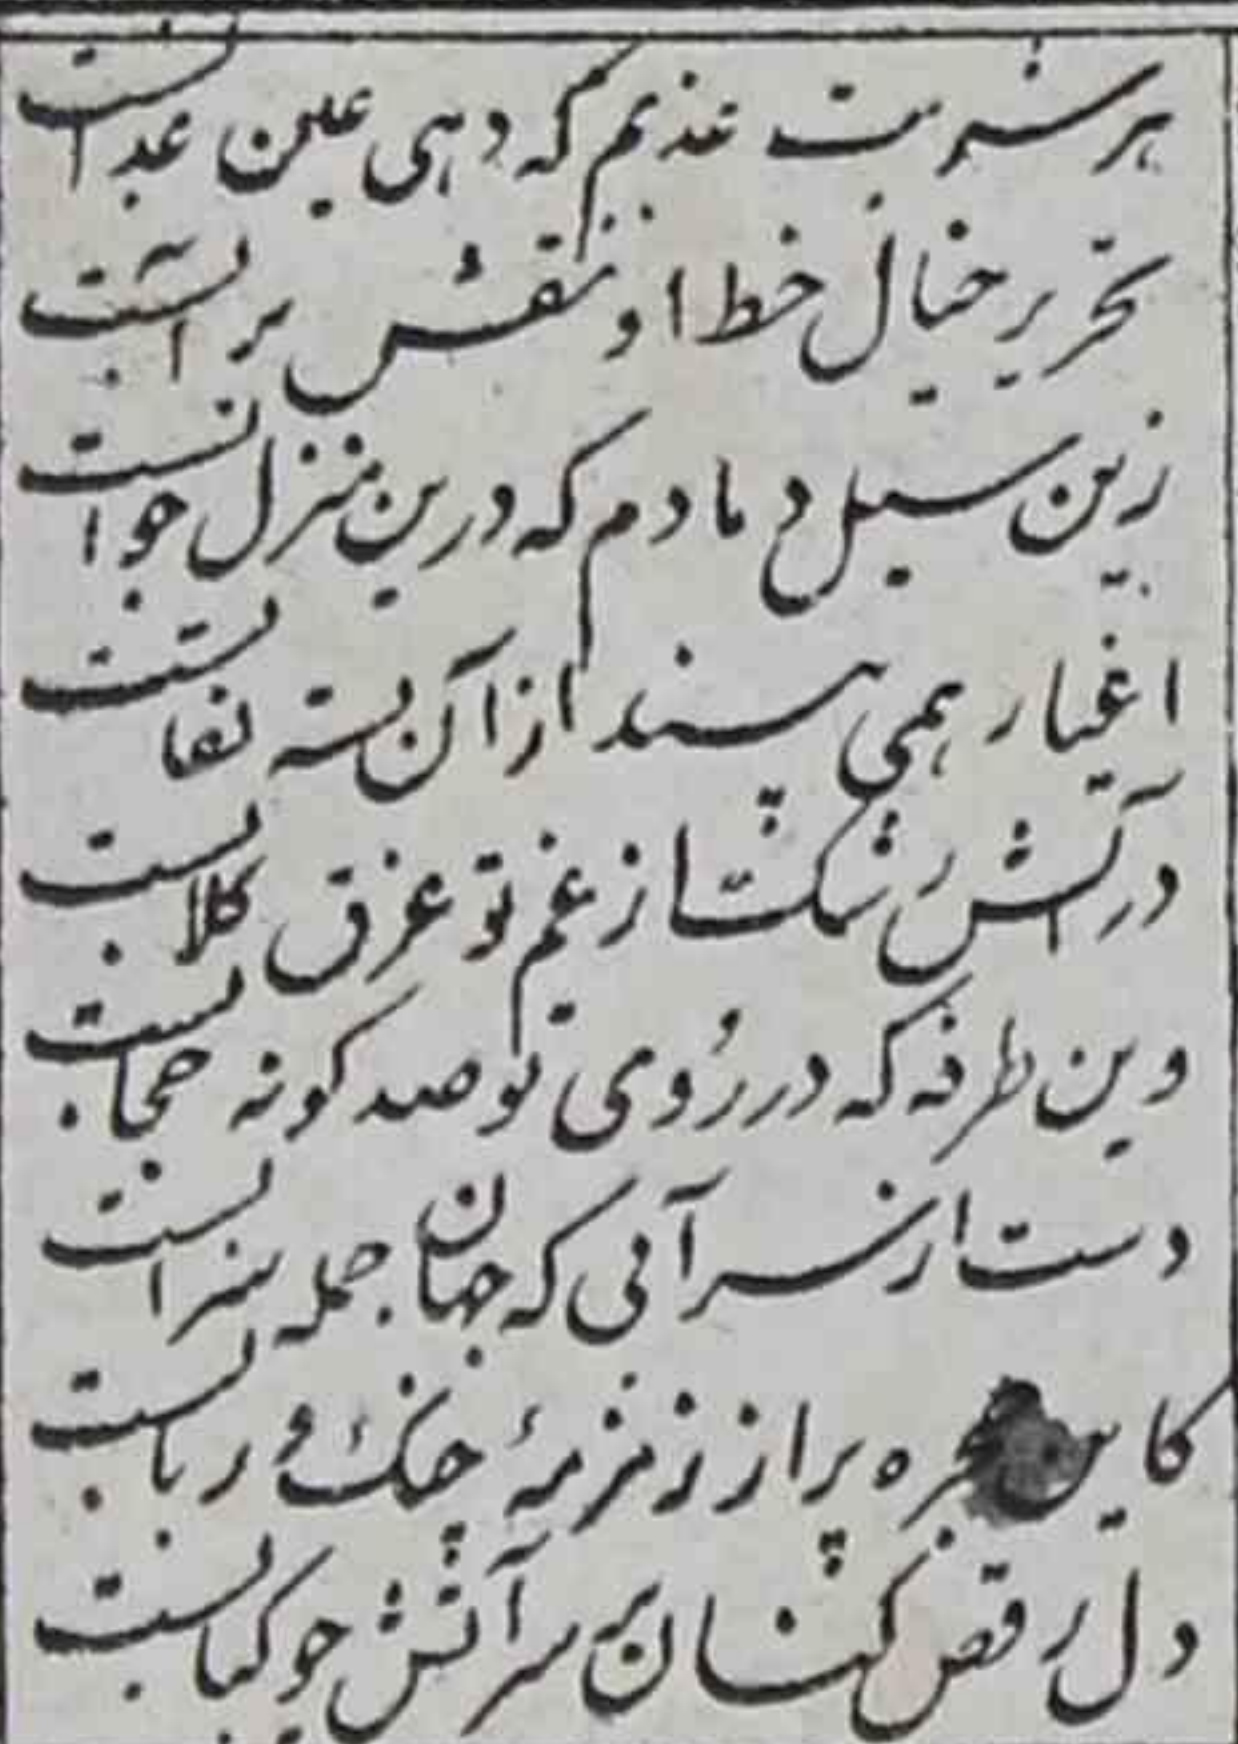 هر شربت عذبم که دهی عین عذابست
تحریر خیال خط او نقش بر آبست
زین سیل دمادم که درین منزل خوابست
اغیار همی بیند از آن بسته نقابست
در آتش رشک از غم تو غرق کلابست
وین طرفه که در روی تو صد کونه حجابست
دست از سر آبی که جهان جمله سرابست
کاین حجره پر از زمزمهٔ چنک و ربابست
دل رقص کنان بر سر آتش چو کبابست